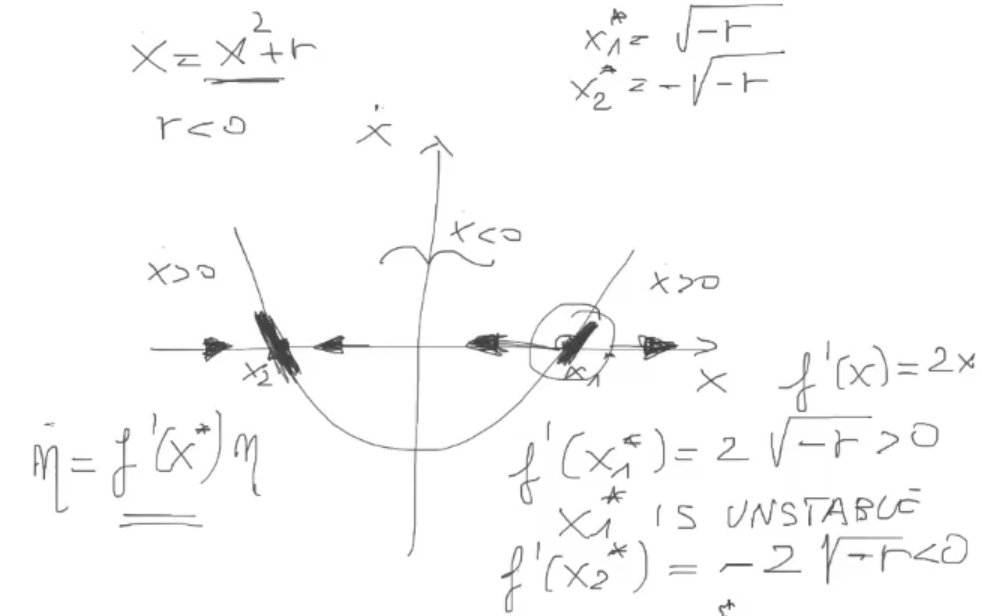 ẋ = x² + r
x₁* = √-r
x₂* = -√-r
r < 0
ẋ
ẋ < 0
ẋ > 0
ẋ > 0
x₂
x₁
x
f'(x) = 2x
η̇ = f'(x*) η
f'(x₁*) = 2 √-r > 0
x₁* IS UNSTABLE
f'(x₂*) = -2 √-r < 0